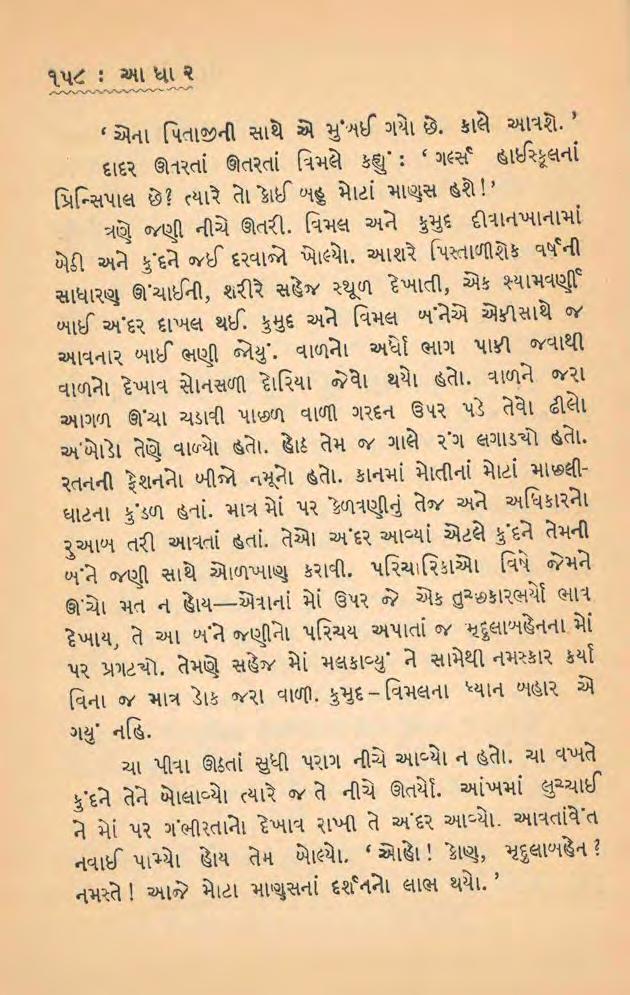 ૧૫૮ : આ ધા ર
‘ એના પિતાજીની સાથે એ મુંબઈ ગયો છે. કાલે આવશે. ’
દાદર ઊતરતાં ઊતરતાં વિમલે કહ્યું : ‘ ગર્લ્સ હાઈસ્કૂલનાં
પ્રિન્સિપાલ છે? ત્યારે તો કોઈ બહુ મોટાં માણસ હશે !’
ત્રણે જણી નીચે ઊતરી. વિમલ અને કુમુદ દીવાનખાનામાં
બેઠી અને કુંદને જઈ દરવાજો ખોલ્યો. આશરે પિસ્તાળીશેક વર્ષની
સાધારણ ઊંચાઈની, શરીરે સહેજ સ્થૂળ દેખાતી, એક શ્યામવર્ણી
બાઈ અંદર દાખલ થઈ. કુમુદ અને વિમલ બંનેએ એકીસાથે જ
આવનાર બાઈ ભણી જોયું. વાળનો અર્ધો ભાગ પાકી જવાથી
વાળનો દેખાવ સોનસળી દોરિયા જેવો થયો હતો. વાળને જરા
આગળ ઊંચા ચડાવી પાછળ વાળી ગરદન ઉપર પડે તેવો ઢીલો
અંબોડો તેણે વાળ્યો હતો. હોઠ તેમ જ ગાલે રંગ લગાડ્યો હતો.
રતનની ફેશનનો બીજો નમૂનો હતો. કાનમાં મોતીનાં મોટાં માછલી-
ઘાટના કુંડળ હતાં. માત્ર મોં પર કેળવણીનું તેજ અને અધિકારનો
રુઆબ તરી આવતાં હતાં. તેઓ અંદર આવ્યાં એટલે કુંદને તેમની
બંને જણી સાથે ઓળખાણ કરાવી. પરિચારિકાઓ વિષે જેમને
ઊંચો મત ન હોય—એવાનાં મોં ઉપર જે એક તુચ્છકારભર્યો ભાવ
દેખાય, તે આ બંને જણીનો પરિચય અપાતાં જ મૃદુલાબહેનના મોં
પર પ્રગટ્યો. તેમણે સહેજ મોં મલકાવ્યું ને સામેથી નમસ્કાર કર્યા
વિના જ માત્ર ડોક જરા વાળી. કુમુદ – વિમલના ધ્યાન બહાર એ
ગયું નહિ.
ચા પીવા ઊઠતાં સુધી પરાગ નીચે આવ્યો ન હતો. ચા વખતે
કુંદને તેને બોલાવ્યો ત્યારે જ તે નીચે ઊતર્યો. આંખમાં લુચ્ચાઈ
ને મોં પર ગંભીરતાનો દેખાવ રાખી તે અંદર આવ્યો. આવતાંવેંત
નવાઈ પામ્યો હોય તેમ બોલ્યો. ‘ ઓહો ! કોણ, મૃદુલાબહેન ?
નમસ્તે ! આજે મોટા માણસનાં દર્શનનો લાભ થયો. ’